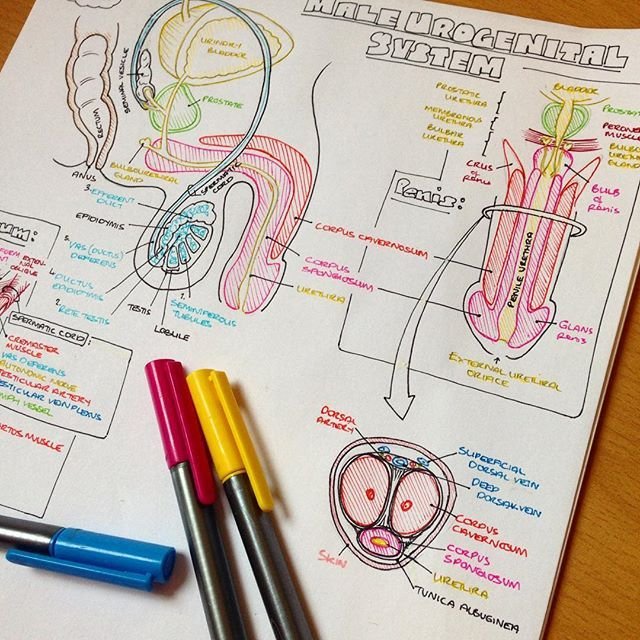 MALE UROGENITAL
SYSTEM
URINARY
BLADDER
SEMINAL VESICLE
RECTUM
PROSTATE
ANUS
BULBOURETHRAL
GLAND
SPERMATIC
CORD
3. EFFERENT
DUCT
EPIDIDYMIS
5.
VAS (DUCTUS)
DEFERENS
4.
DUCTUS
EPIDIDYMIS
2.
RETE TESTIS
TESTIS
LOBULE
1.
SEMINIFEROUS
TUBULES
CORPUS CAVERNOSUM
CORPUS
SPONGIOSUM
URETHRA
UM:
FORM EXTER
NAL
OBLIQUE
SPERMATIC CORD:
CREMASTER
MUSCLE
VAS DEFERENS
AUTONOMIC NERVE
TESTICULAR ARTERY
ESTICULAR VEIN PLEXUS
MPH VESSEL
ARTOS MUSCLE
PROSTATIC
URETHRA
MEMBRANOUS
URETHRA
BULBAR
URETHRA
BLADDER
PROSTAT
PERONE
MUSCLE
BULBO
URETH
GLAND
CRUS
of PENIS
BULB
of
PENIS
Penis:
PENILE URETHRA
GLANS
PENIS
EXTERNAL URETHRAL
ORIFACE
DORSAL
ARTERY
SUPERFICIAL
DORSAL VEIN
DEEP
DORSAL VEIN
CORPUS
CAVERNOSUM
CORPUS
SPONGIOSUM
URETHRA
TUNICA ALBUGINEA
SKIN